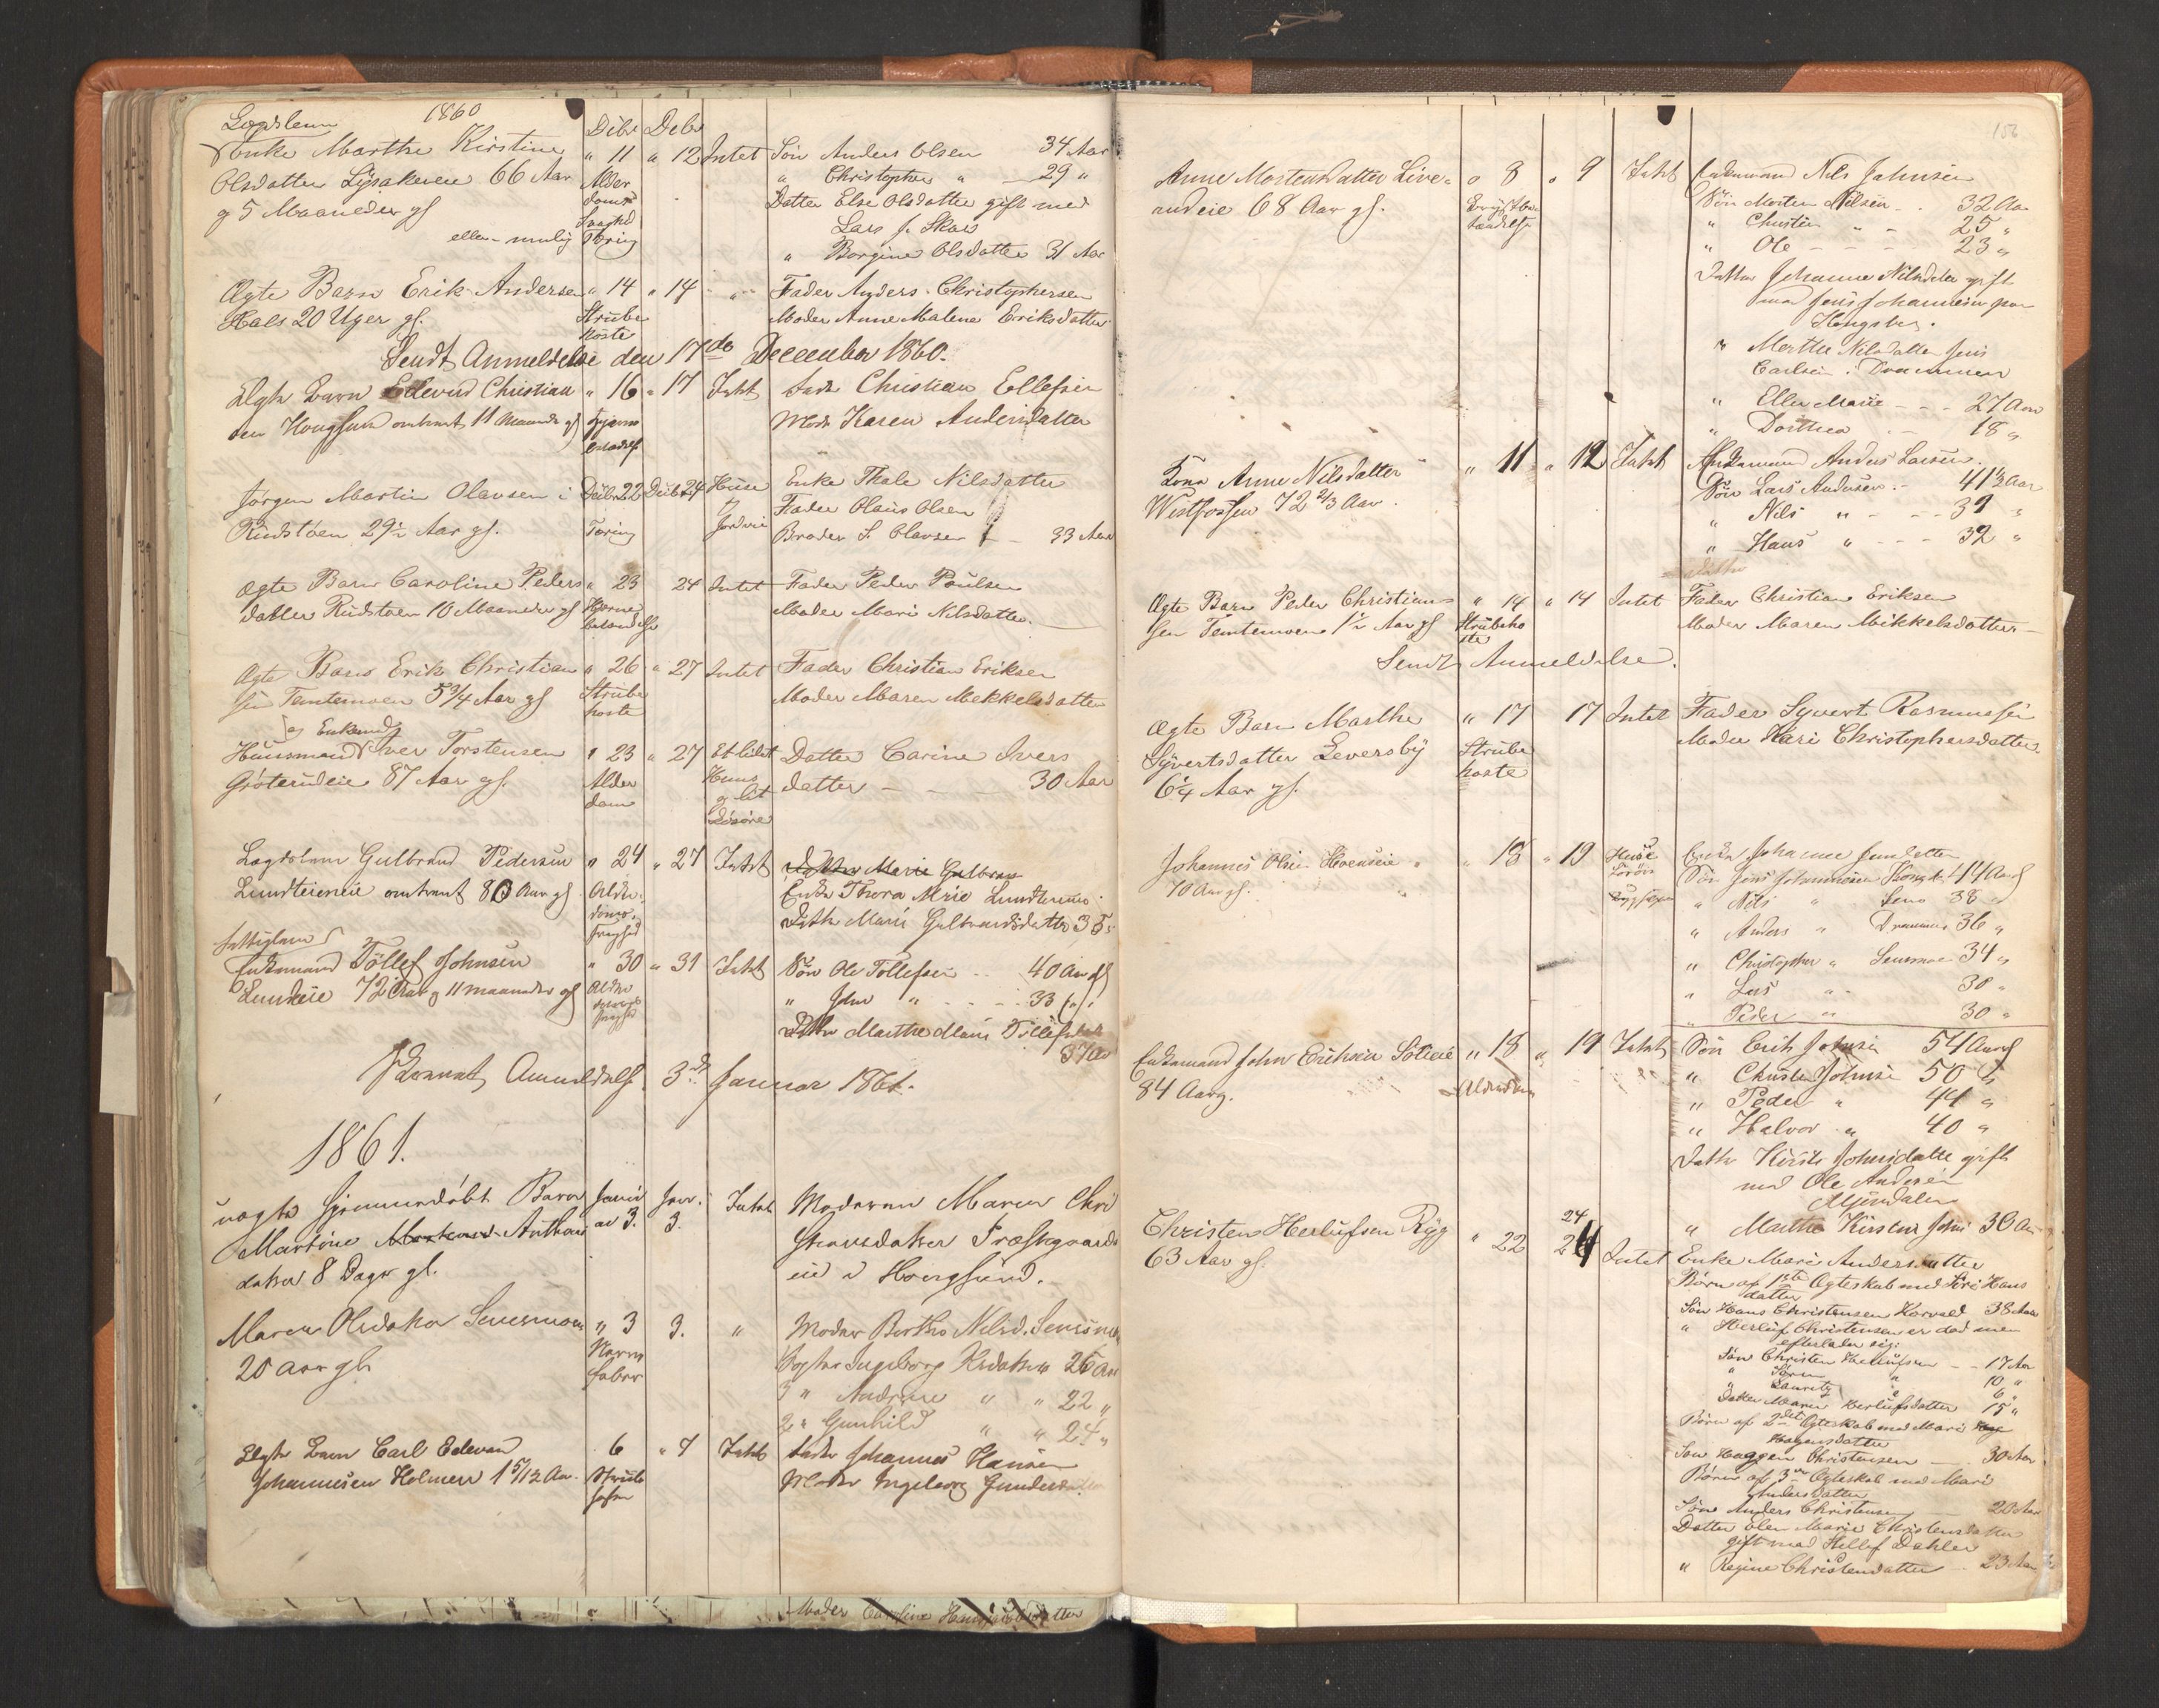 Lægdslem 1860 Dcbr Dcbr
Enke Marthe Kirstine " 11 " 12 Intet Søn Anders Olsen 34 Aar
Olsdatter Lysakereie 66 Aar Alder " Christopher " 29 "
g 5 Maaneder gl doms Datter Else Olsdatter gift med
Svaghed Lars Skars
eller muligt Tæring " Borgine Olsdatter 31 Aar
Ægte Barn Erik Andersen " 14 " 14 " Fader Anders Christophersen
Hals 20 Uger gl. Strube Moder Anne Malene Eriksdatter
hoste
Sendt Anmeldelse den 17de December 1860.
Ægte Barn Edevard Christian " 16 " 17 Intet Fader Christian Ellefsen
sen Hougsund omtrent 11 Maaneder gl Hjerne Moder Karen Andersdatter
betændelse
Jørgen Martin Olavsen i Dcbr 22 Dcbr 24 Huse Enke Thale Nilsdatter
Rudstøen 29½ Aar gl. Tæring g Fader Olaus Olsen
Jordvei Broder S. Olavsen 33 Aar
Ægte Barn Caroline Peders " 23 24 Intet Fader Peder Poulsen
datter Rudstøen 10 Maaneder gl Hjerne Moder Mari Nilsdatter
betændelse
Ægte Barn Erik Christian " 26 " 27 Intet Fader Christian Eriksen
sen Temtemoen 5 3/4 Aar gl Strube Moder Maren Mekkelsdatter
hoste
og Enkemd
Huusmand Iver Torstensen " 23 " 27 Et lidet Datter Carine Ivers
Grøterudeie 87 Aar gl. Alder Huus datter 30 Aar
dom g lit
Løsøre
Lægdslem Gulbrand Pedersen " 24 " 27 Intet Datter Marie Gulbran
Lundteieneie omtrent 80 Aar gl Alder Enke Thora Mrie Lundteieneie
doms Datter Marie Gulbrandsdatter 35
svaghed
fattiglem
Enkemand Tollef Johnsen " 30 " 31 Intet Søn Ole Tollefsen 40 Aar gl
Lundeie 72 Aar g 11 maaneder gl Alder " John " 33
doms Datter Marthe Marie Tollefsdatter
svaghed 37 Aar
Sendt Anmeldelse 3de Januar 1861.
1861.
uægte hjemmedøbt Barn Janr Janr. Intet Moderen Maren Chri
Martine Anthons 3. 3. stensdatter Præstegaards
datter 8 Dager gl. eie v Hougsund.
Maren Olsdatter Sensmoen " 3 3. " Moder Berthe Nilsd. Sensmoen
20 aar gl Nerve Søster Ingeborg 26 Aar
feber " Andrine " " 22 "
" Gunhild " " 24 "
Ægte Barn Carl Edevard 6 " 7 Intet Fader Johannes Hansen
Johannesen Holmen 1 5/12 Aar. Strube Moder Ingeborg Gundersdatter
hoste
Moder Caroline Hansdatter
156
Anne Mortensdatter Live= " 8 " 9 Intet Enkemand Nils Johnsen
rudeie 68 Aar gl. Brystbe Søn Morten Nilsen 32 Aar
tændelse " Christen " 25 "
" Ole 23 "
Datter Johanne Nilsdatter gift
med Jens Johannesen paa
Kongsberg.
" Marthe Nilsdatter Jens
Carlsen i Drammen
" Ellen Marie 27 Aar
" Dorthea 18 "
Kone Anne Nilsdatter " 11 " 12 Intet Enkemand Anders Larsen.
Westfossen 72 2/3 Aar. Søn Lars Andersen 41½ Aar
" Nils " 39 "
" Hans " 32 "
Datter
Ægte Barn Peder Christian= " 14 " 14 Intet Fader Christian Eriksen
sen Temtemoen 1½ Aar gl Strubeho Moder Maren Mikkelsdatter
ste
Sendt Anmeldelse.
Ægte Barn Marthe " 17 17 Intet Fader Syvert Rasmussen
Syvertsdatter Leversby Strube Moder Kari Christophersdatter
6¼ Aar gl. hoste
Johannes Olsen Hoenseie " 18 " 19 Huse Enke Johanne Jensdatter
70 Aar gl. Løsøre Søn Jens Johannesen Kongsb. 44 Aar gl
" Nils " 38 "
" Anders " Drammen 36 "
" Christopher " Sensmoen 34 "
" Lars " 30 "
" Peder " 30 "
Enkemand John Eriksen Solieie " 18 " 19 Intet Søn Erik Johnsen 54 Aar gl
84 Aar g. Alderdom " Christen Johnsen 50 "
" Peder " 44 "
" Halvor " 40 "
Datter Kirsti Johnsdatter gift
med Ole Andersen
Mjøndalen
24
" Marthe Kirstine Johns 30 Aar
Christen Herlufsen Ryg " 22 24 Intet Enke Mari Andersdatter
63 Aar gl. Børn af 1ste Ægteskab med Siri Hans
datter
Søn Hans Christensen Horveld 38 Aar
" Herluf Christensen er død men
efterlader sig:
Søn Christen Herlufsen 17 Aar
" Søren " 10 "
" Lauritz " 6 "
Datter Maren Herlufsdatter 15 "
Børn af 2det Ægteskab med Mari
Hagensdatter
Søn Haagen Christensen 30 Aar
Børn af 3die Ægteskab med Mari
Andersdatter
Søn Anders Christensen 20 Aar
Datter Elen Marie Christensdatter
gift med Hellef Dahler
" Regine Christensdatter 23 Aar